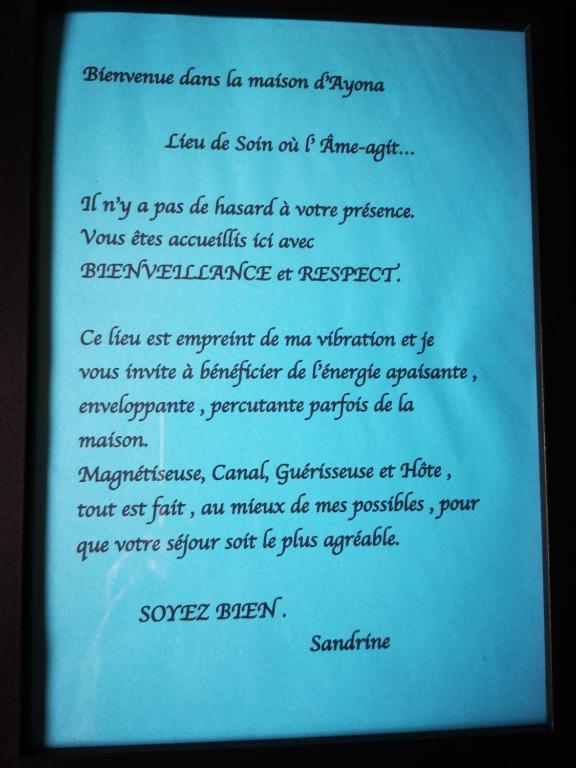 Bienvenue dans la maison d'Ayona
Lieu de Soin où l' Âme-agit...
Il n'y a pas de hasard à votre présence.
Vous êtes accueillis ici avec
BIENVEILLANCE et RESPECT.
Ce lieu est empreint de ma vibration et je
vous invite à bénéficier de l'énergie apaisante ,
enveloppante , percutante parfois de la
maison.
Magnétiseuse, Canal, Guérisseuse et Hôte ,
tout est fait , au mieux de mes possibles , pour
que votre séjour soit le plus agréable.
SOYEZ BIEN .
Sandrine